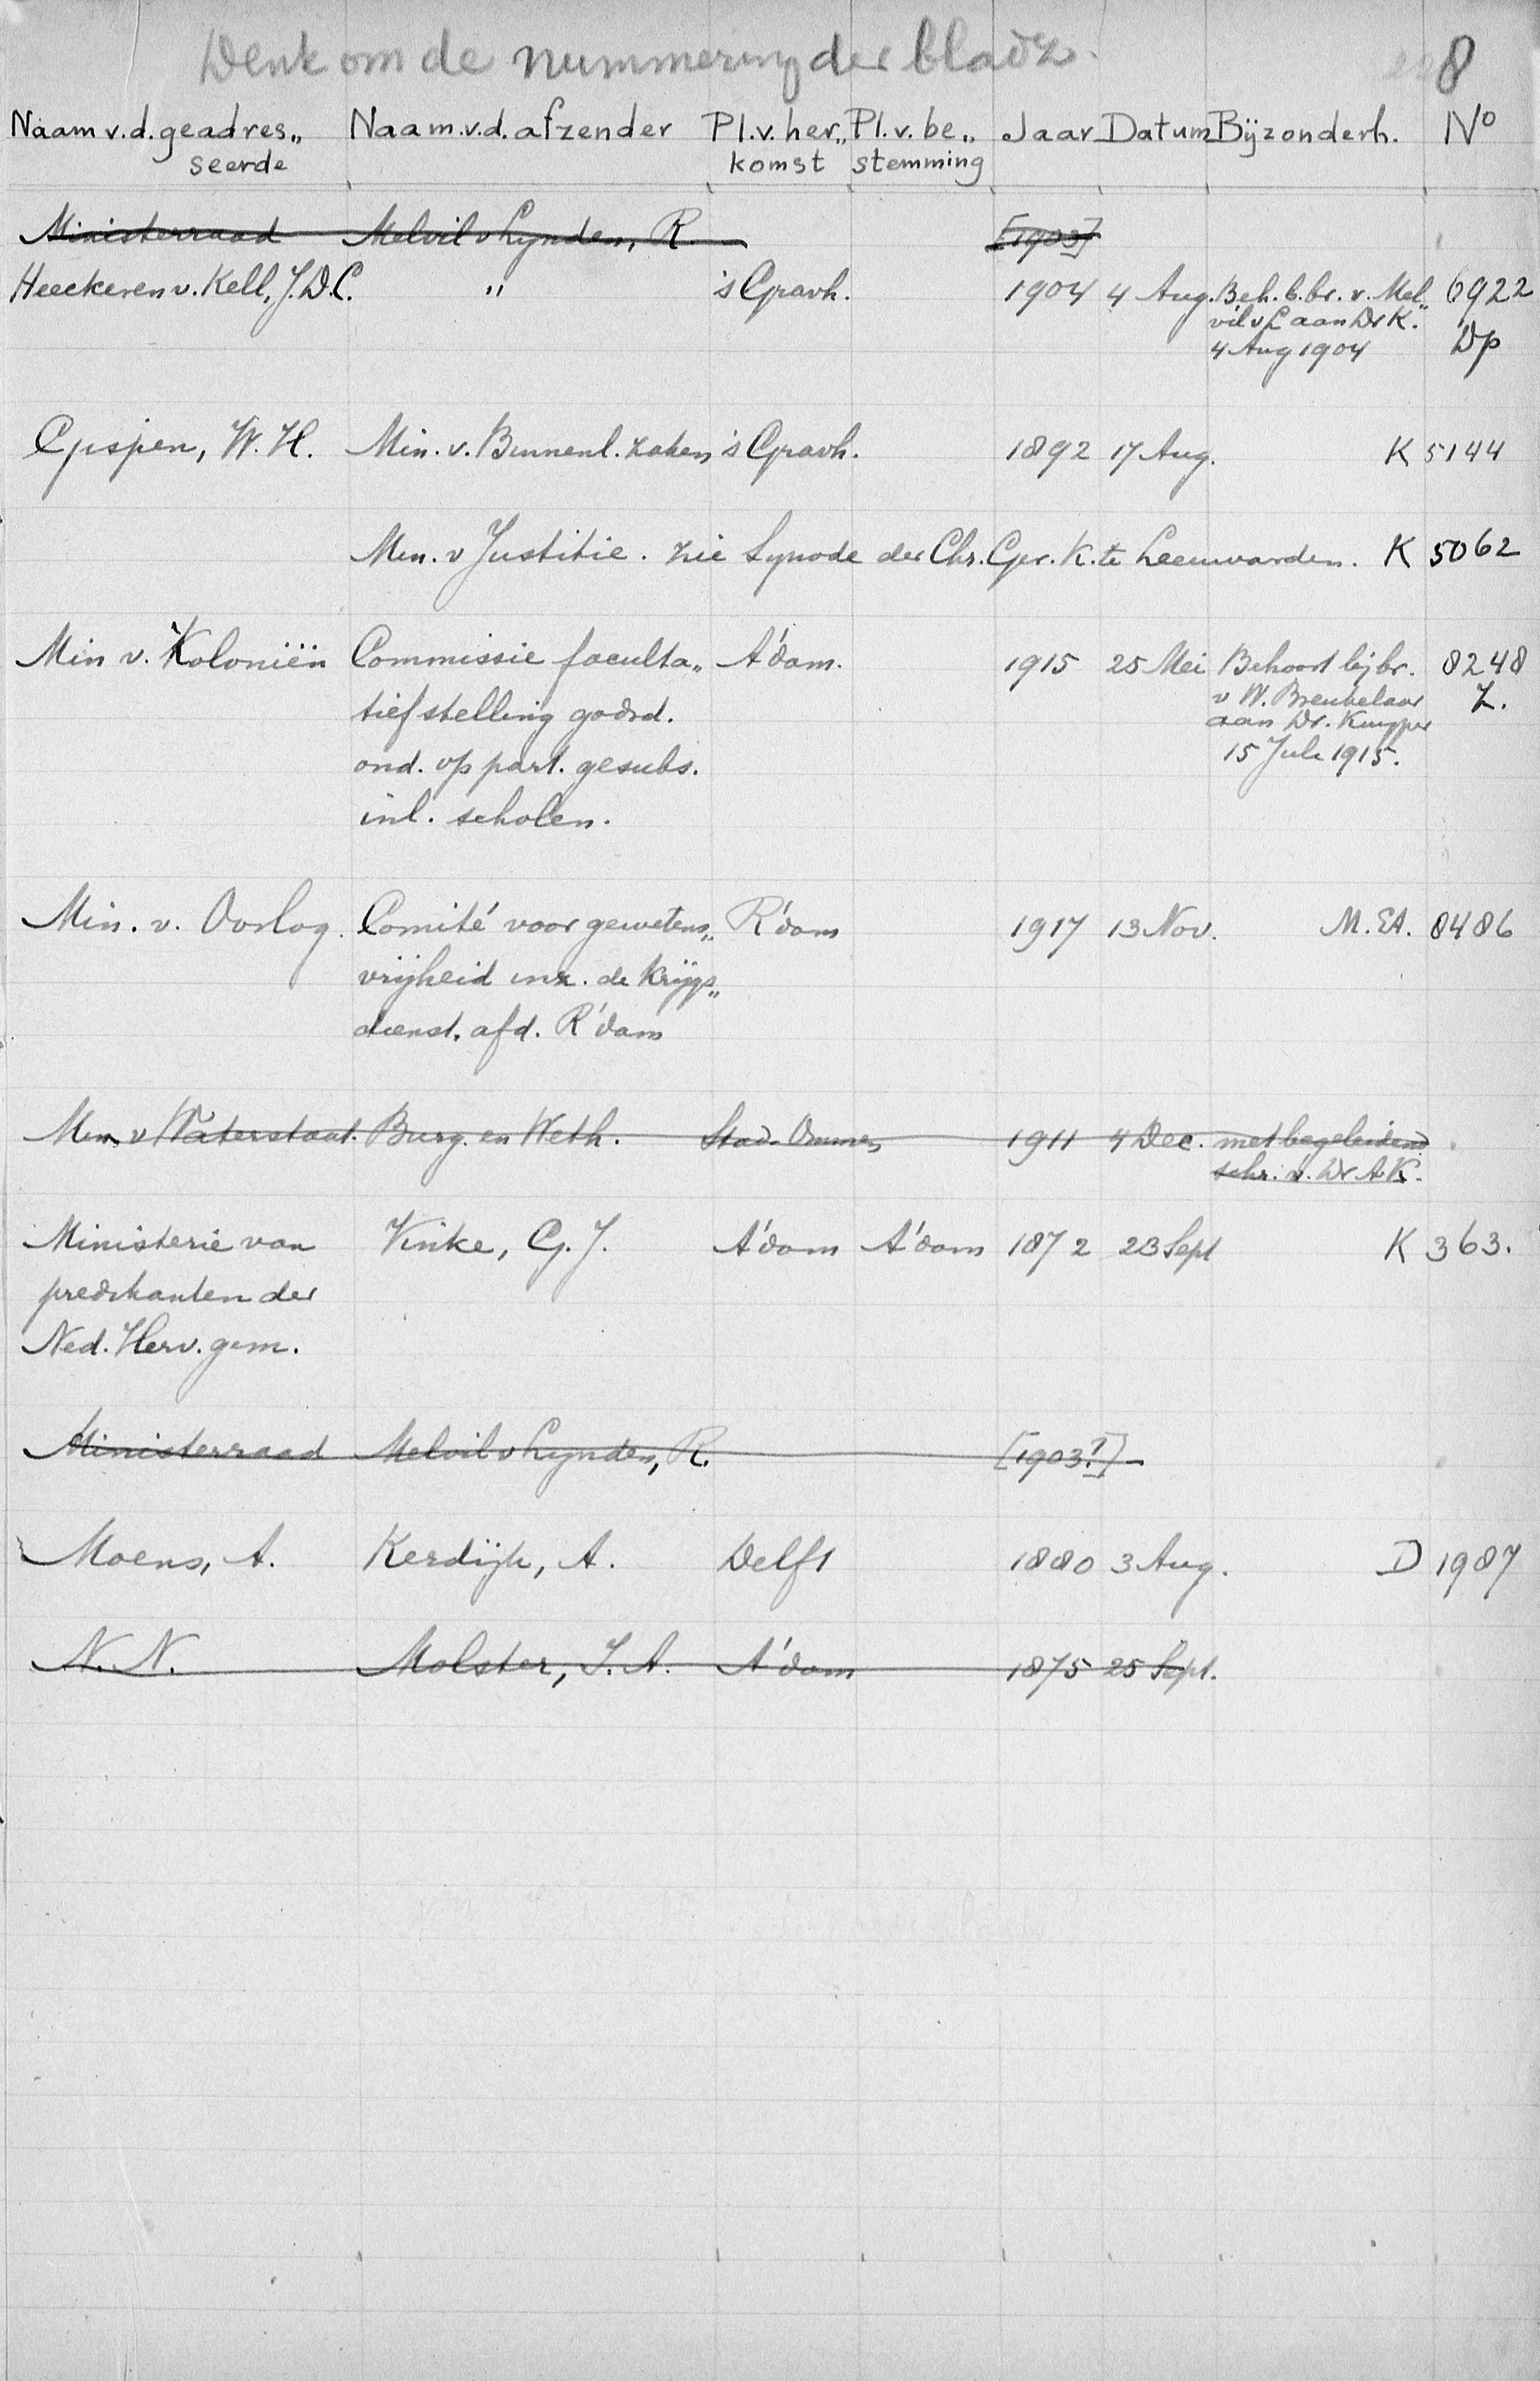 Denk om de nummering der bladz.
8
Naam v.d. geadres„ Naam.v.d. afzender Pl.v.her„ Pl.v.be„ Jaar Datum Bijzonderh. No
seerde komst stemming
Ministerraad Melvil v Lynden, R. [1903]
Heeckeren v. Kell, J.D.C. " 's Gravh. 1904 4 Aug. Beh. b. br. v. Mel„ 6922
vil v L aan Dr K. Dp
4 Aug 1904
Gispen, W.H. Min. v. Binnenl. zaken 's Gravh. 1892 17 Aug. K 5144
Min. v Justitie. zie Synode der Chr. Ger. K. te Leeuwarden. K 5062
Min v. Koloniën Commissie faculta„ A'dam. 1915 25 Mei Behoort bij br. 8248
tiefstelling godsd. v W. Breukelaar Z.
ond. op part. gesubs. aan Dr. Kuyper
inl. scholen. 15 Juli 1915.
Min. v. Oorlog. Comité voor gewetens„ R'dam 1917 13 Nov. M.EA. 8486
vrijheid inz. de Krijgs„
dienst. afd. R'dam
Min v Waterstaat. Burg. en Weth. Stad-Ommen 1911 4 Dec. met begeleidend
schr. v. Dr A.K.
Ministerie van Vinke, G.J. A'dam A'dam 1872 23 Sept K 363.
predikanten der
Ned. Herv. gem.
Ministerraad Melvil v Lynden, R. [1903?]
Moens, A. Kerdijk, A. Delft 1880 3 Aug. D 1987
N.N. Molster, J.A. A'dam 1875 25 Sept.